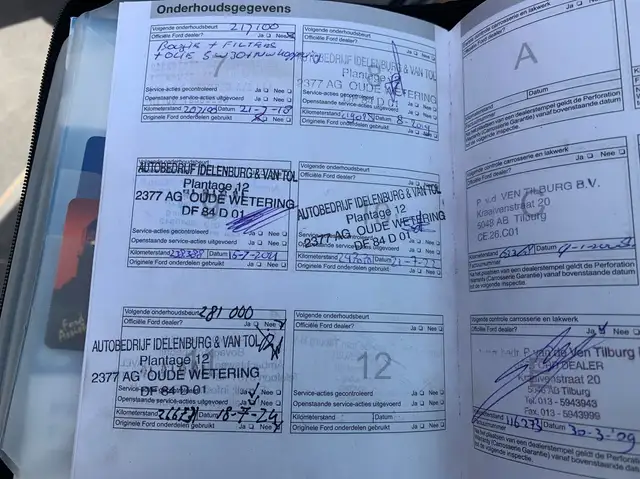 Onderhoudsgegevens
Volgende onderhoudsbeurt 217100
Officiële Ford dealer? Ja Nee
BOUGIE + FILTERS
+ OLIE
Service-acties gecontroleerd Ja Nee
Openstaande service-acties uitgevoerd Ja Nee
Kilometerstand Datum
Originele Ford onderdelen gebruikt Ja Nee
Volgende onderhoudsbeurt
Officiële Ford dealer? Ja Nee
AUTOBEDRIJF IDELENBURG & VAN TOL
Plantage 12
2377 AG OUDE WETERING
Service-acties gecontroleerd
Openstaande service-acties uitgevoerd
Kilometerstand Datum
Originele Ford onderdelen gebruikt Ja Nee
AUTOBEDRIJF IDELENBURG & VAN TOL
Plantage 12
2377 AG OUDE WETERING
DF 84 D 01
Service-acties gecontroleerd Ja Nee
Openstaande service-acties uitgevoerd Ja Nee
Kilometerstand Datum
Originele Ford onderdelen gebruikt Ja Nee
AUTOBEDRIJF IDELENBURG & VAN TOL
Plantage 12
2377 AG OUDE WETERING
DF 84 D 01
Openstaande service-acties uitgevoerd
Kilometerstand Datum
Originele Ford onderdelen gebruikt Ja Nee
Volgende onderhoudsbeurt 281 000
Officiële Ford dealer? Ja Nee
AUTOBEDRIJF IDELENBURG & VAN TOL
Plantage 12
2377 AG OUDE WETERING
DF 84 D 01
Service-acties gecontroleerd Ja Nee
Openstaande service-acties uitgevoerd Ja Nee
Kilometerstand Datum 18-7-24
Originele Ford onderdelen gebruikt Ja Nee
Volgende onderhoudsbeurt
Officiële Ford dealer? Ja Nee
12
Service-acties gecontroleerd Ja Nee
Openstaande service-acties uitgevoerd Ja Nee
Kilometerstand Datum
Originele Ford onderdelen gebruikt Ja Nee
Officiële Ford dealer? Ja Nee
A
Kilometerstand Datum
Na het plaatsen van een dealerstempel geldt de Perforation
Warranty (Carrosserie Garantie) vanaf bovenstaande datum
tot de volgende inspectie.
Volgende controle carrosserie en lakwerk
Officiële Ford dealer? Ja Nee
P. v.d VEN TILBURG B.V.
Kraaivenstraat 20
5048 AB Tilburg
CE.26.C01
Kilometerstand Datum
Na het plaatsen van een dealerstempel geldt de Perforation
Warranty (Carrosserie Garantie) vanaf bovenstaande datum
tot de volgende inspectie.
Volgende controle carrosserie en lakwerk
Officiële Ford dealer? Ja Nee
Ven Tilburg
DEALER
Kraaivenstraat 20
Tilburg
Tel. 013 - 5943943
Fax. 013 - 5943999
116273 Datum 30-3-'09
Na het plaatsen van een dealerstempel geldt de Perforation
Warranty (Carrosserie Garantie) vanaf bovenstaande datum
tot de volgende inspectie.